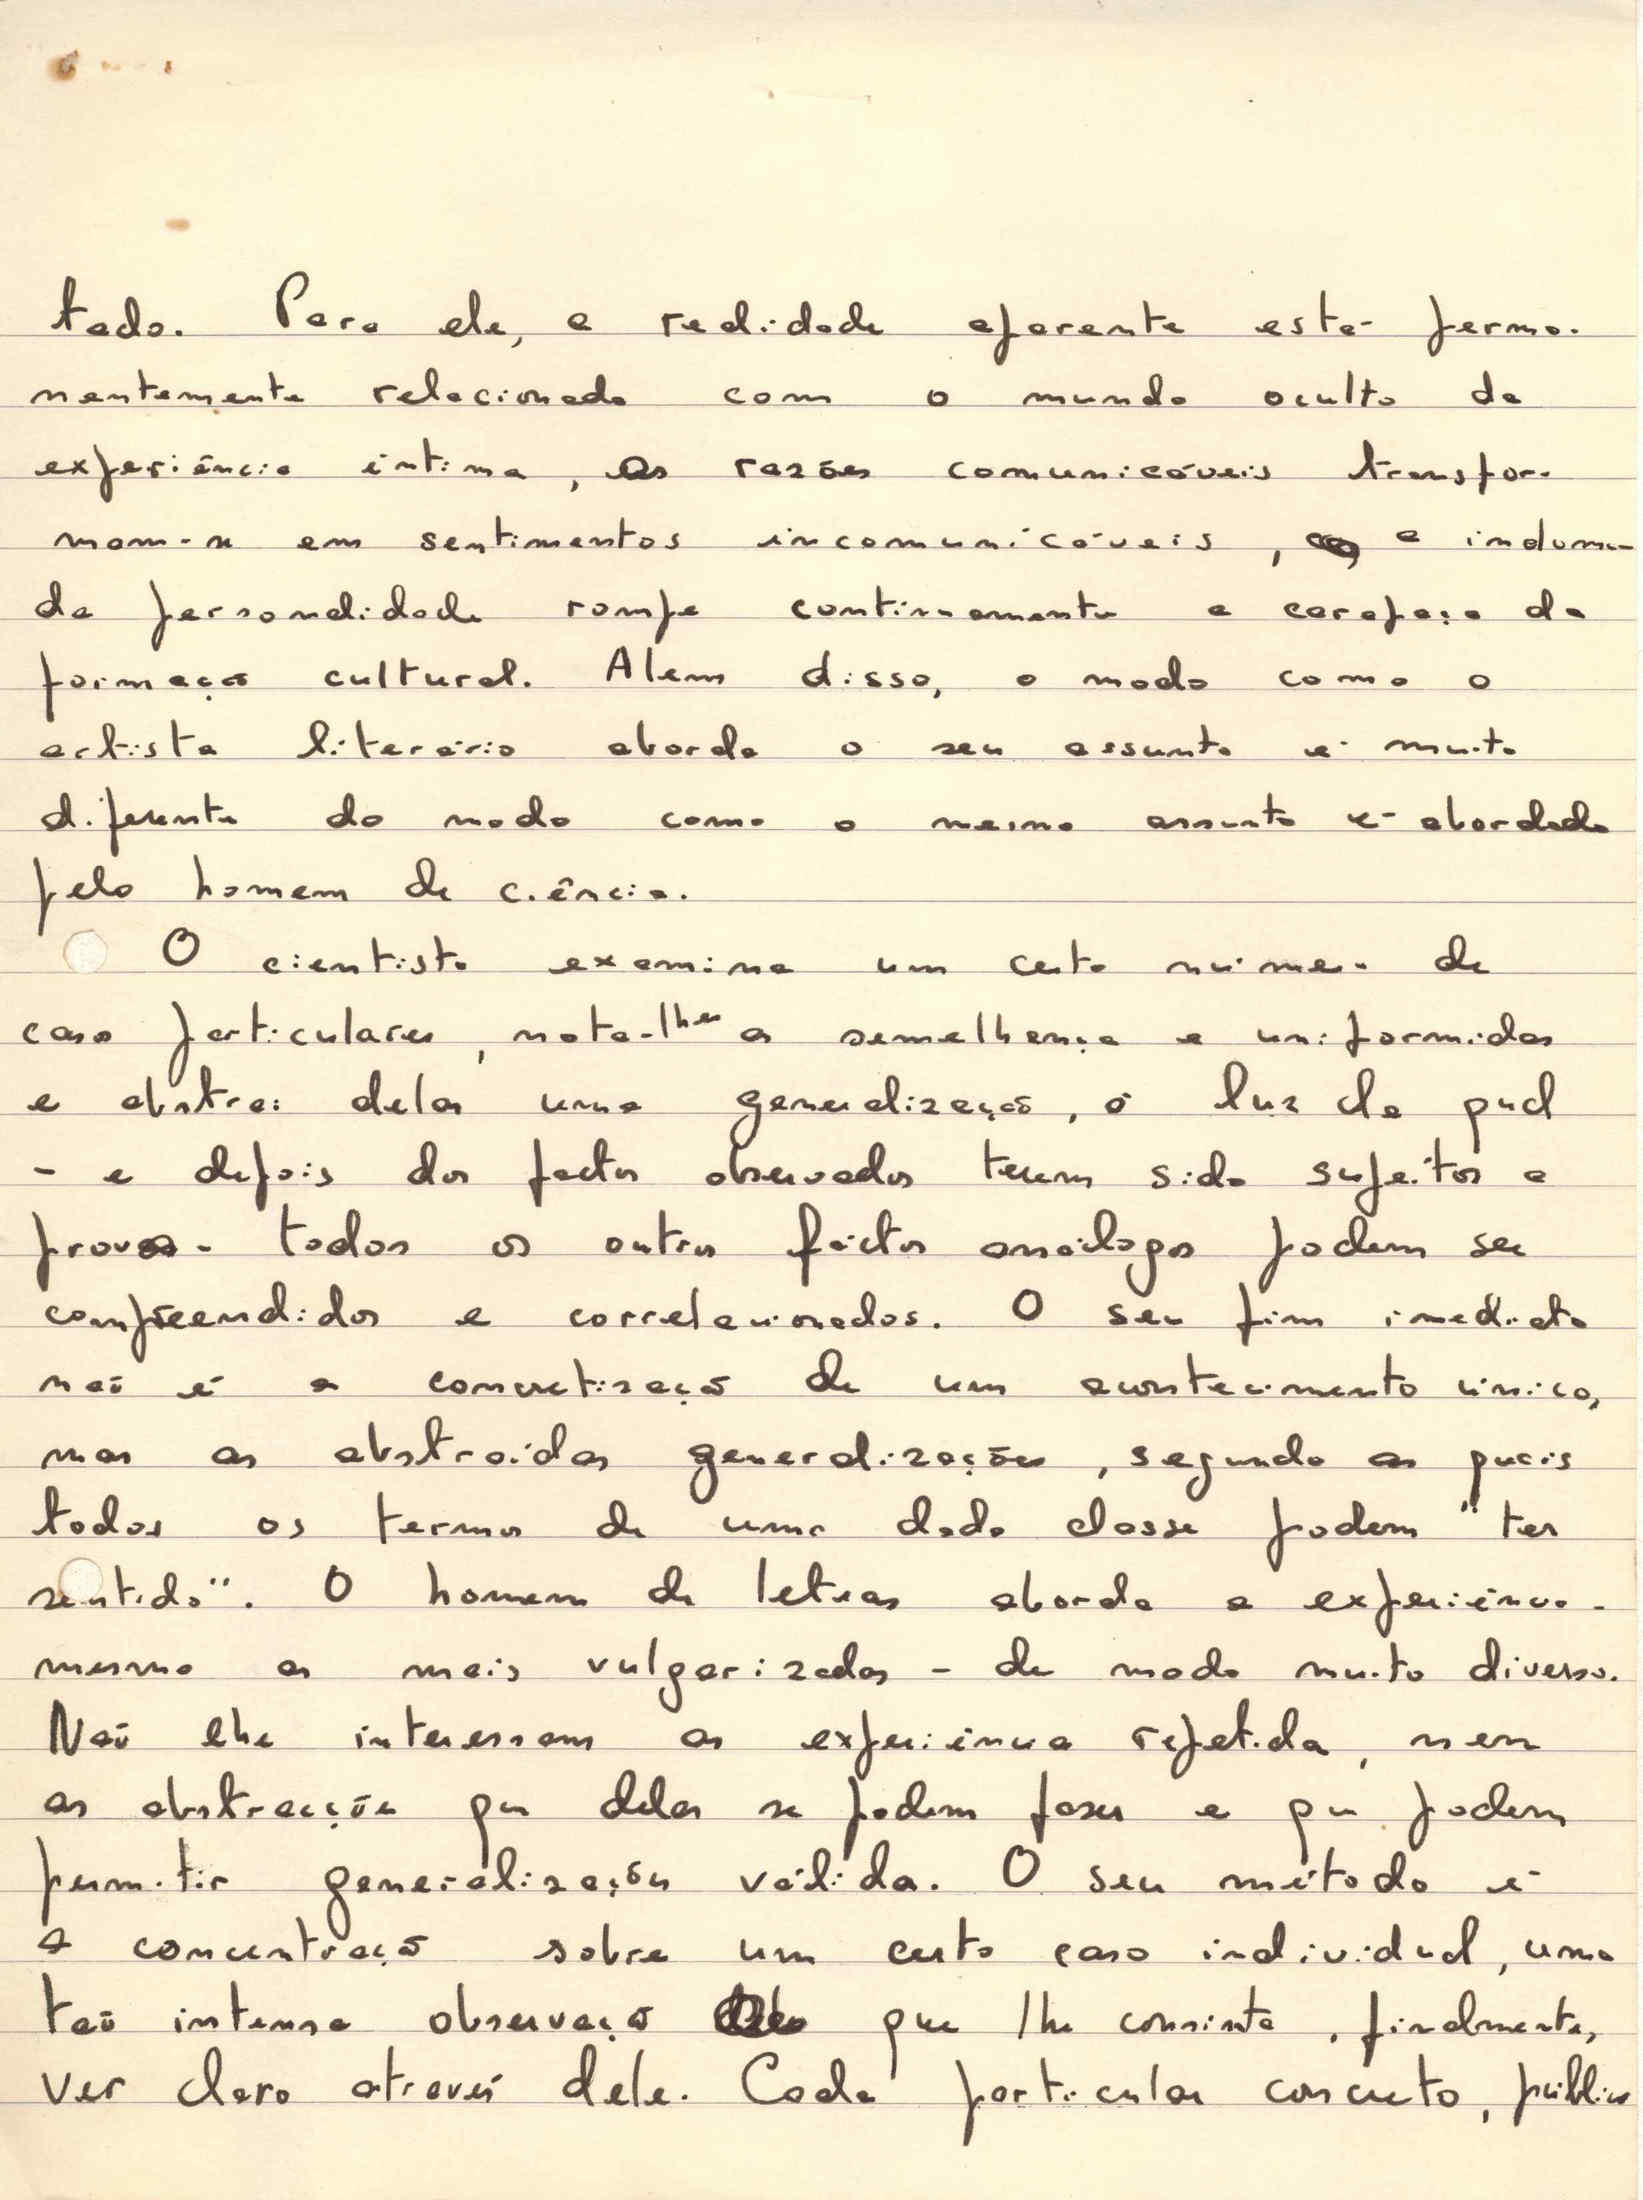 tado. Para ele, a realidade aparente está perma-
nentemente relacionada com o mundo oculto da
experiência íntima, as razões comunicáveis transfor-
mam-se em sentimentos incomunicáveis, a indoma-
da personalidade rompe continuamente a carapaça da
formação cultural. Alem disso, o modo como o
artista literário aborda o seu assunto é muito
diferente do modo como o mesmo assunto é abordado
pelo homem de ciência.
O cientista examina um certo número de
casos particulares, nota-lhes a semelhança e uniformidas
e abstrai delas uma generalização, à luz da qual
- e depois dos factos observados terem sido sujeitos a
provas - todos os outros factos análogos podem ser
compreendidos e correlacionados. O seu fim imediato
não é a concretização de um acontecimento único,
mas as abstraídas generalizações, segundo as quais
todos os termos de uma dada classe podem "ter
sentido". O homem de letras aborda a experiência -
mesmo as mais vulgarizadas - de modo muito diverso.
Não lhe interessam as experiência repetida, nem
as abstracções que delas se podem fazer e que podem
permitir generalizações válida. O seu método é
a concentração sobre um certo caso individual, uma
tão intensa observação que lhe consinta, finalmente,
ver claro através dele. Cada particular concreto, público